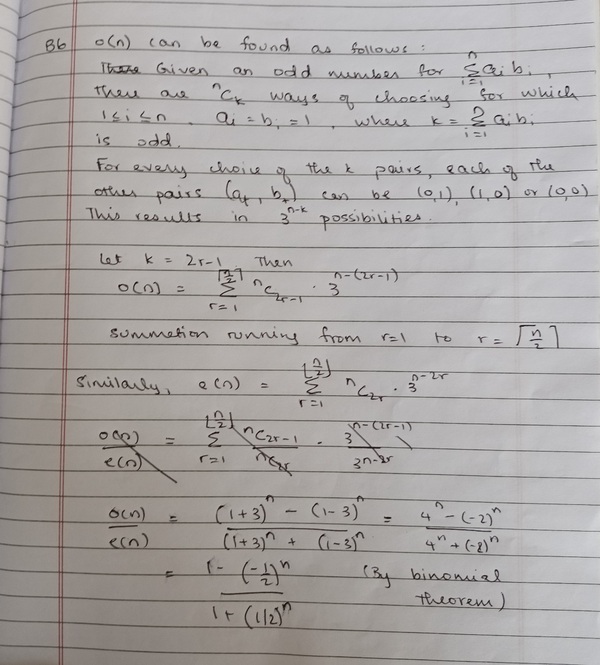 B6 o(n) can be found as follows:
Given an odd number for ∑_{i=1}^{n} a_i b_i,
there are ⁿC_k ways of choosing for which
1≤i≤n, a_i = b_i = 1, where k = ∑_{i=1}^{n} a_i b_i
is odd.
For every choice of the k pairs, each of the
other pairs (a_t, b_t) can be (0,1), (1,0) or (0,0)
This results in 3^{n-k} possibilities.
Let k = 2r-1 Then
o(n) = ∑_{r=1}^{⌈n/2⌉} ⁿC_{2r-1} · 3^{n-(2r-1)}
summation running from r=1 to r = ⌈n/2⌉
Similarly, e(n) = ∑_{r=1}^{⌊n/2⌋} ⁿC_{2r} · 3^{n-2r}
o(n)/e(n) = ∑_{r=1}^{⌊n/2⌋} ⁿC_{2r-1}/ⁿC_{2r} · 3^{n-(2r-1)}/3^{n-2r}
o(n)/e(n) = ((1+3)^n - (1-3)^n)/((1+3)^n + (1-3)^n) = (4^n - (-2)^n)/(4^n + (-2)^n)
= (1 - (-1/2)^n)/(1 + (1/2)^n) (By binomial
theorem)